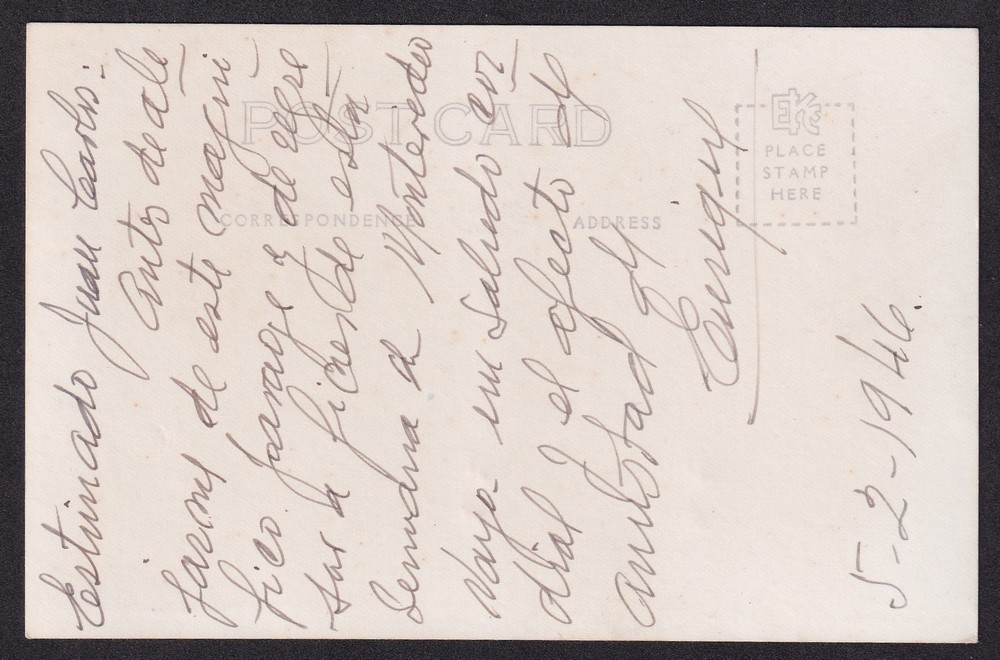 POST CARD
CORRESPONDENCE
ADDRESS
EKC
PLACE
STAMP
HERE
Estimado Juan Carlos:
Antes de ale
jarme de este magní
fico paraje y de regre
sar a fines de esta
semana a Montevideo
vaya un saludo cor
dial y el afecto de
amistad de
Enrique
5-2-1946.